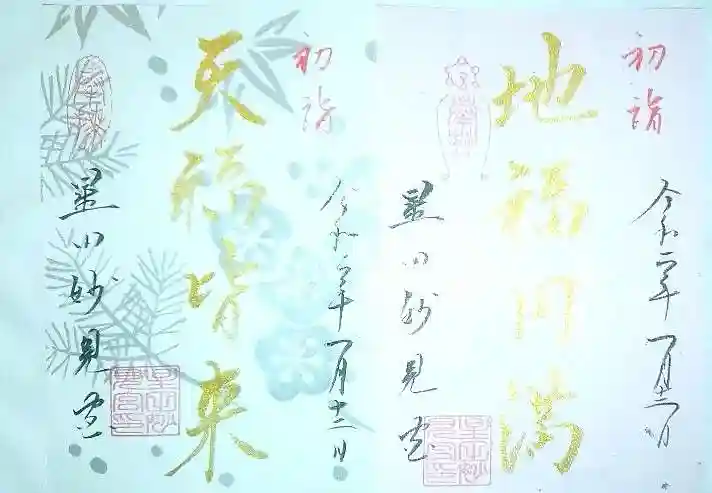 初詣
令和二年一月十三日
地福円満
星田妙見宮
初詣
令和二年一月十三日
天福皆来
奉拝
星田妙見宮